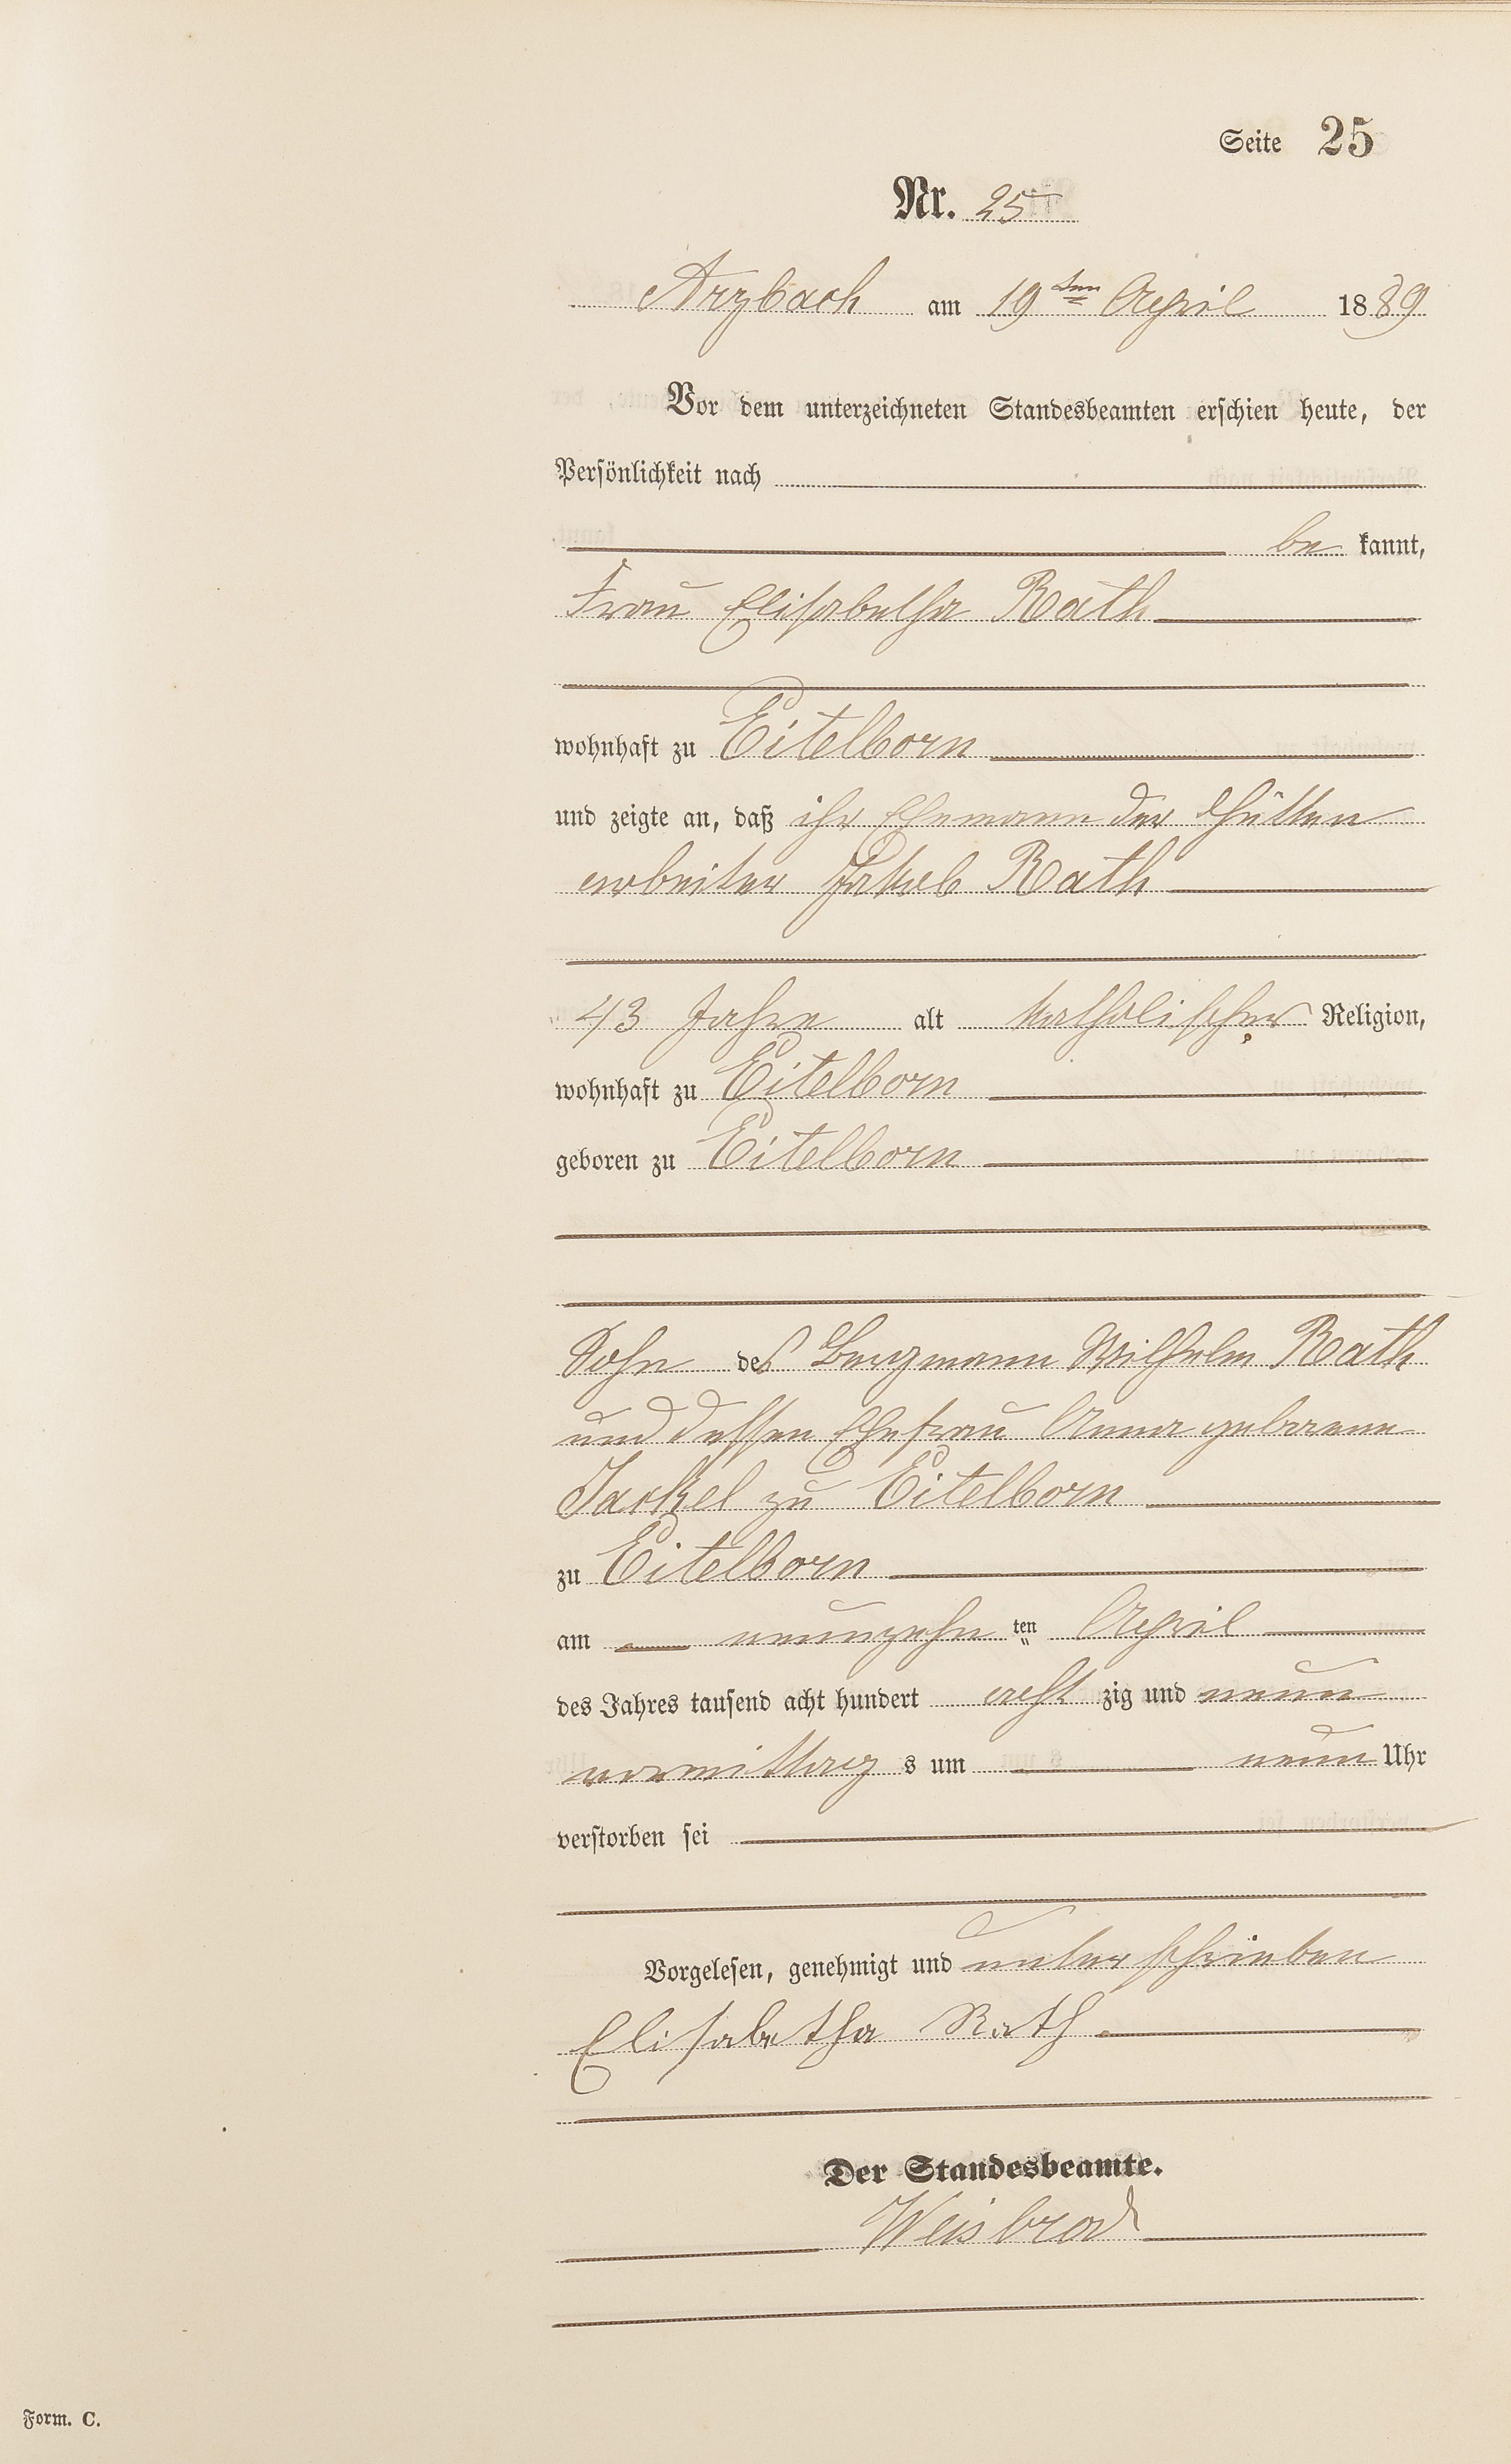 Seite 25
Nr. 25
Arzbach am 19ten April 1889
Vor dem unterzeichneten Standesbeamten erschien heute, der
Persönlichkeit nach
be kannt,
Frau Elisabetha Rath
wohnhaft zu Eitelborn
und zeigte an, daß ihr Ehemann der Hütten
arbeiter Jakob Rath
43 Jahre alt katholischer Religion,
wohnhaft zu Eitelborn
geboren zu Eitelborn
Sohn des Bergmann Wilhelm Rath
und dessen Ehefrau Anna geborene
Jackel zu Eitelborn
zu Eitelborn
am neunzehn ten April
des Jahres tausend acht hundert acht zig und neun
vormittag s um neun Uhr
verstorben sei
Vorgelesen, genehmigt und unterschrieben
Elisabetha Rath
Der Standesbeamte.
Weisbrod
Form. C.